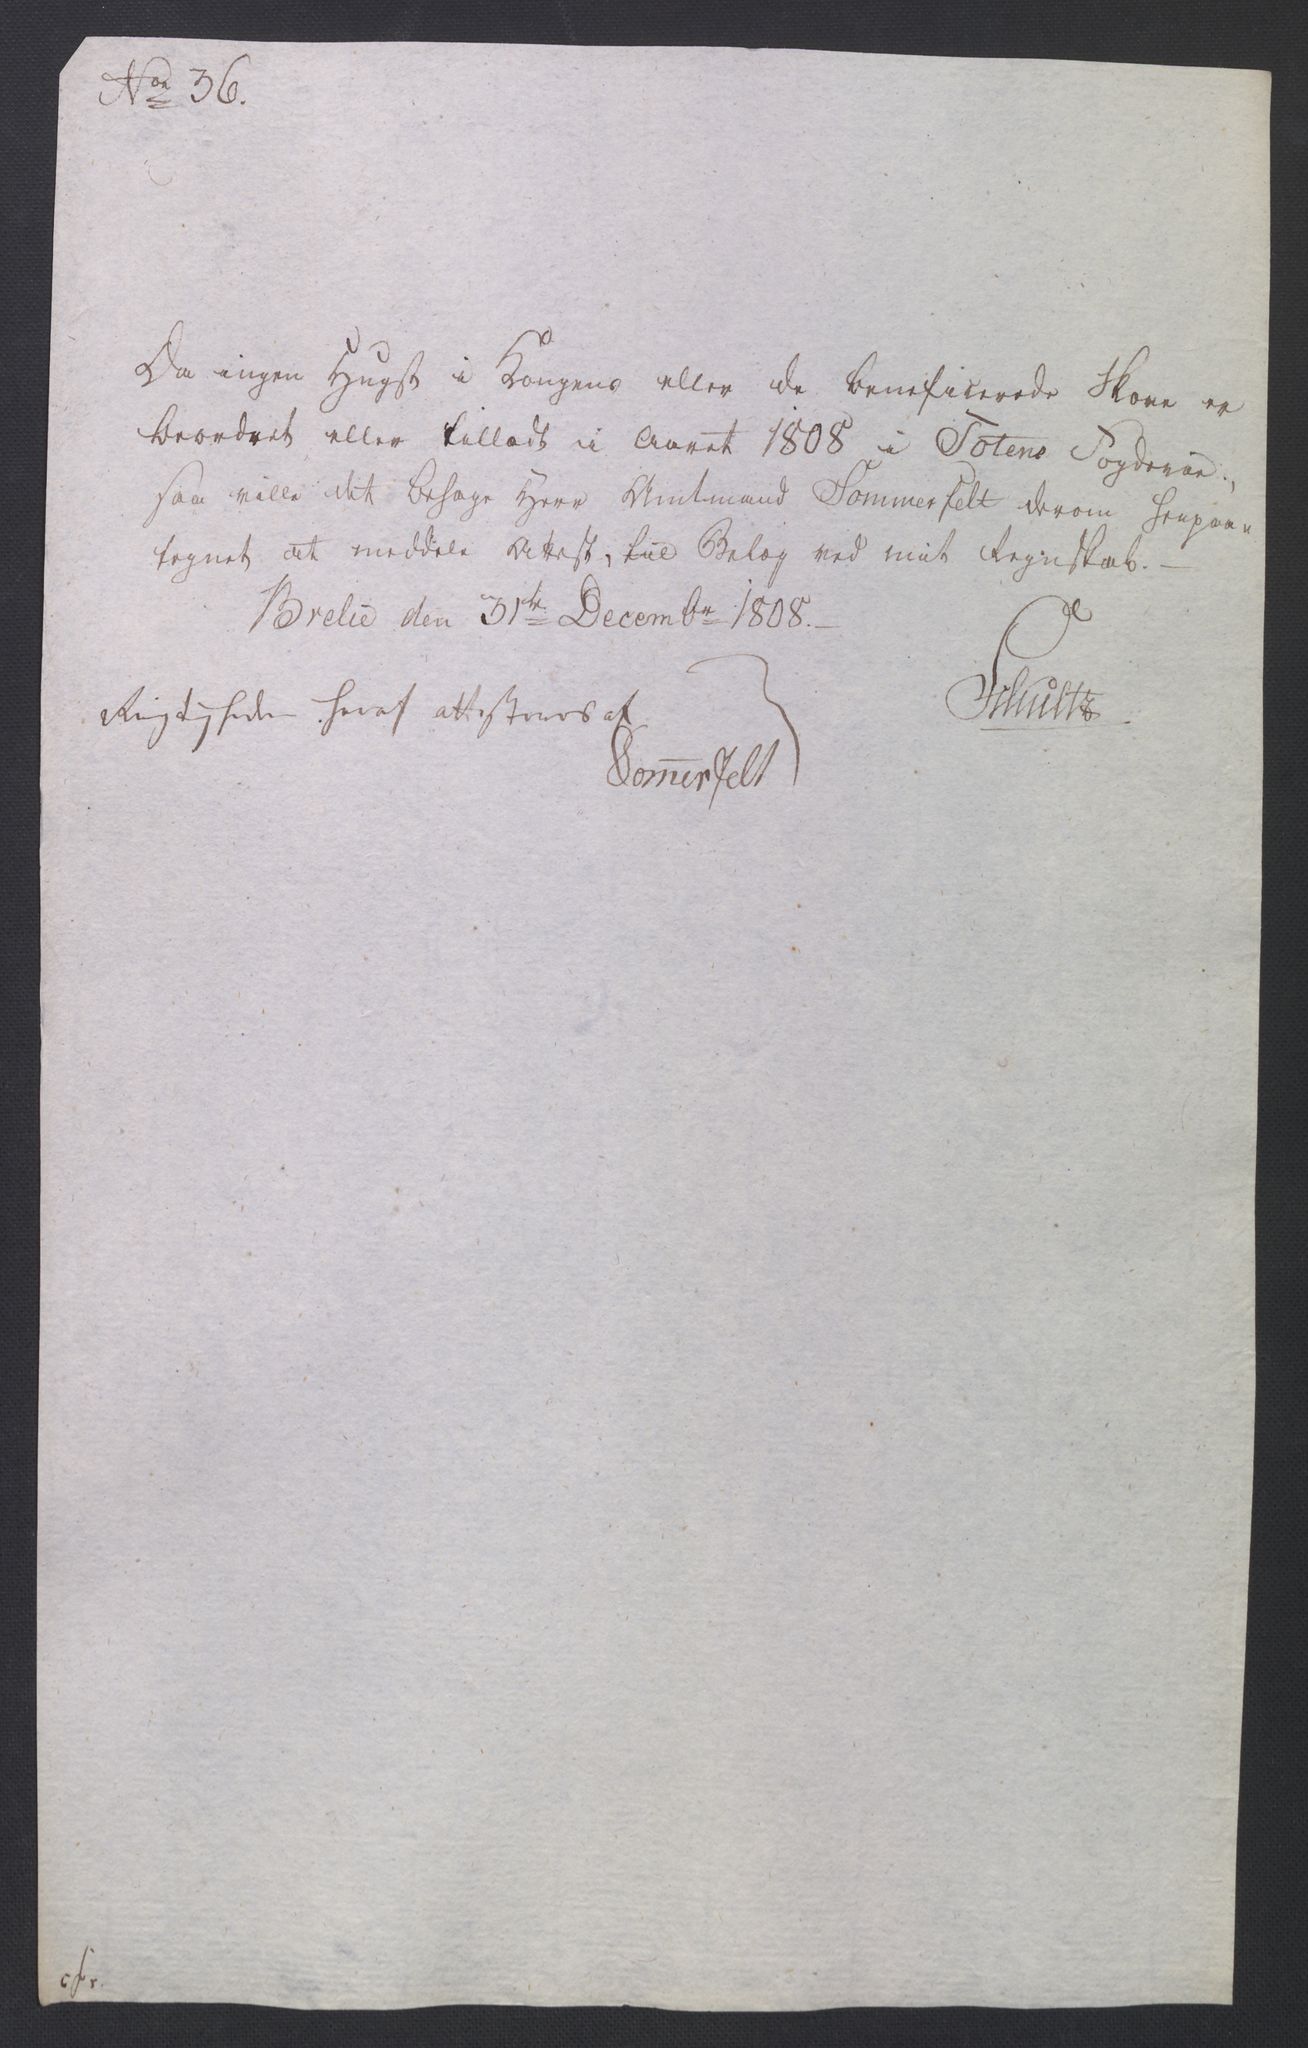 No 36.
Da ingen Hugst i Kongens eller de beneficerede Skove er
beordret eller tilladt i Aaret 1808 i Totens Fogderie,
saa ville det behage Herr Amtmand Sommerfelt derom herpaa
tegnet at meddele Attest, til Belæg ved mit Regnskab. —
Brelie den 31te Decembr 1808. —
Schultz
Rigtigheden heraf attesteres af
Somerfelt
cfr.